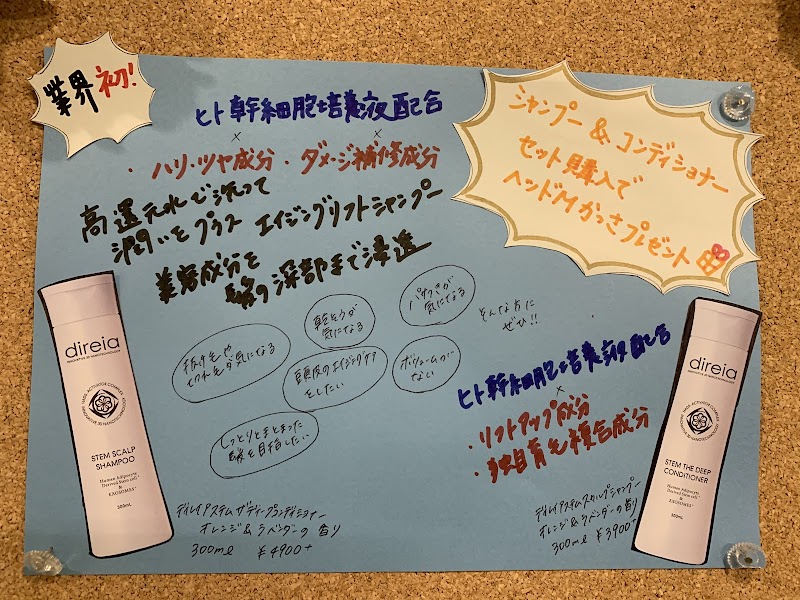 業界初!
ヒト幹細胞培養液配合
×
×
・ハリ・ツヤ成分・ダメージ補修成分
高還元水で洗って
潤いをプラス エイジングリフトシャンプー
美容成分を
髪の深部まで浸透
シャンプー & コンディショナー
セット購入で
ヘッドMかっさプレゼント
抜け毛や
クセ毛が気になる
乾そうが
気になる
パサつきが
気になる
そんな方に
ぜひ!!
頭皮のエイジングケア
をしたい
ボリュームが
ない
しっとりとまとまった
髪を目指したい
ヒト幹細胞培養液配合
×
・リフトアップ成分
・独自育毛複合成分
direia
INNOVATIVE 3D NANOTECHNOLOGY
STEM SCALP
SHAMPOO
Human Adipocyte
Derived Stem cell
&
EXOSOMES
300mL
ディレイアステムザディープコンディショナー
オレンジ&ラベンダーの香り
300ml ¥4900+
direia
INNOVATIVE 3D NANOTECHNOLOGY
STEM THE DEEP
CONDITIONER
Human Adipocyte
Derived Stem cell
&
EXOSOMES
300mL
ディレイアステムスカルプシャンプー
オレンジ&ラベンダーの香り
300ml ¥3900+